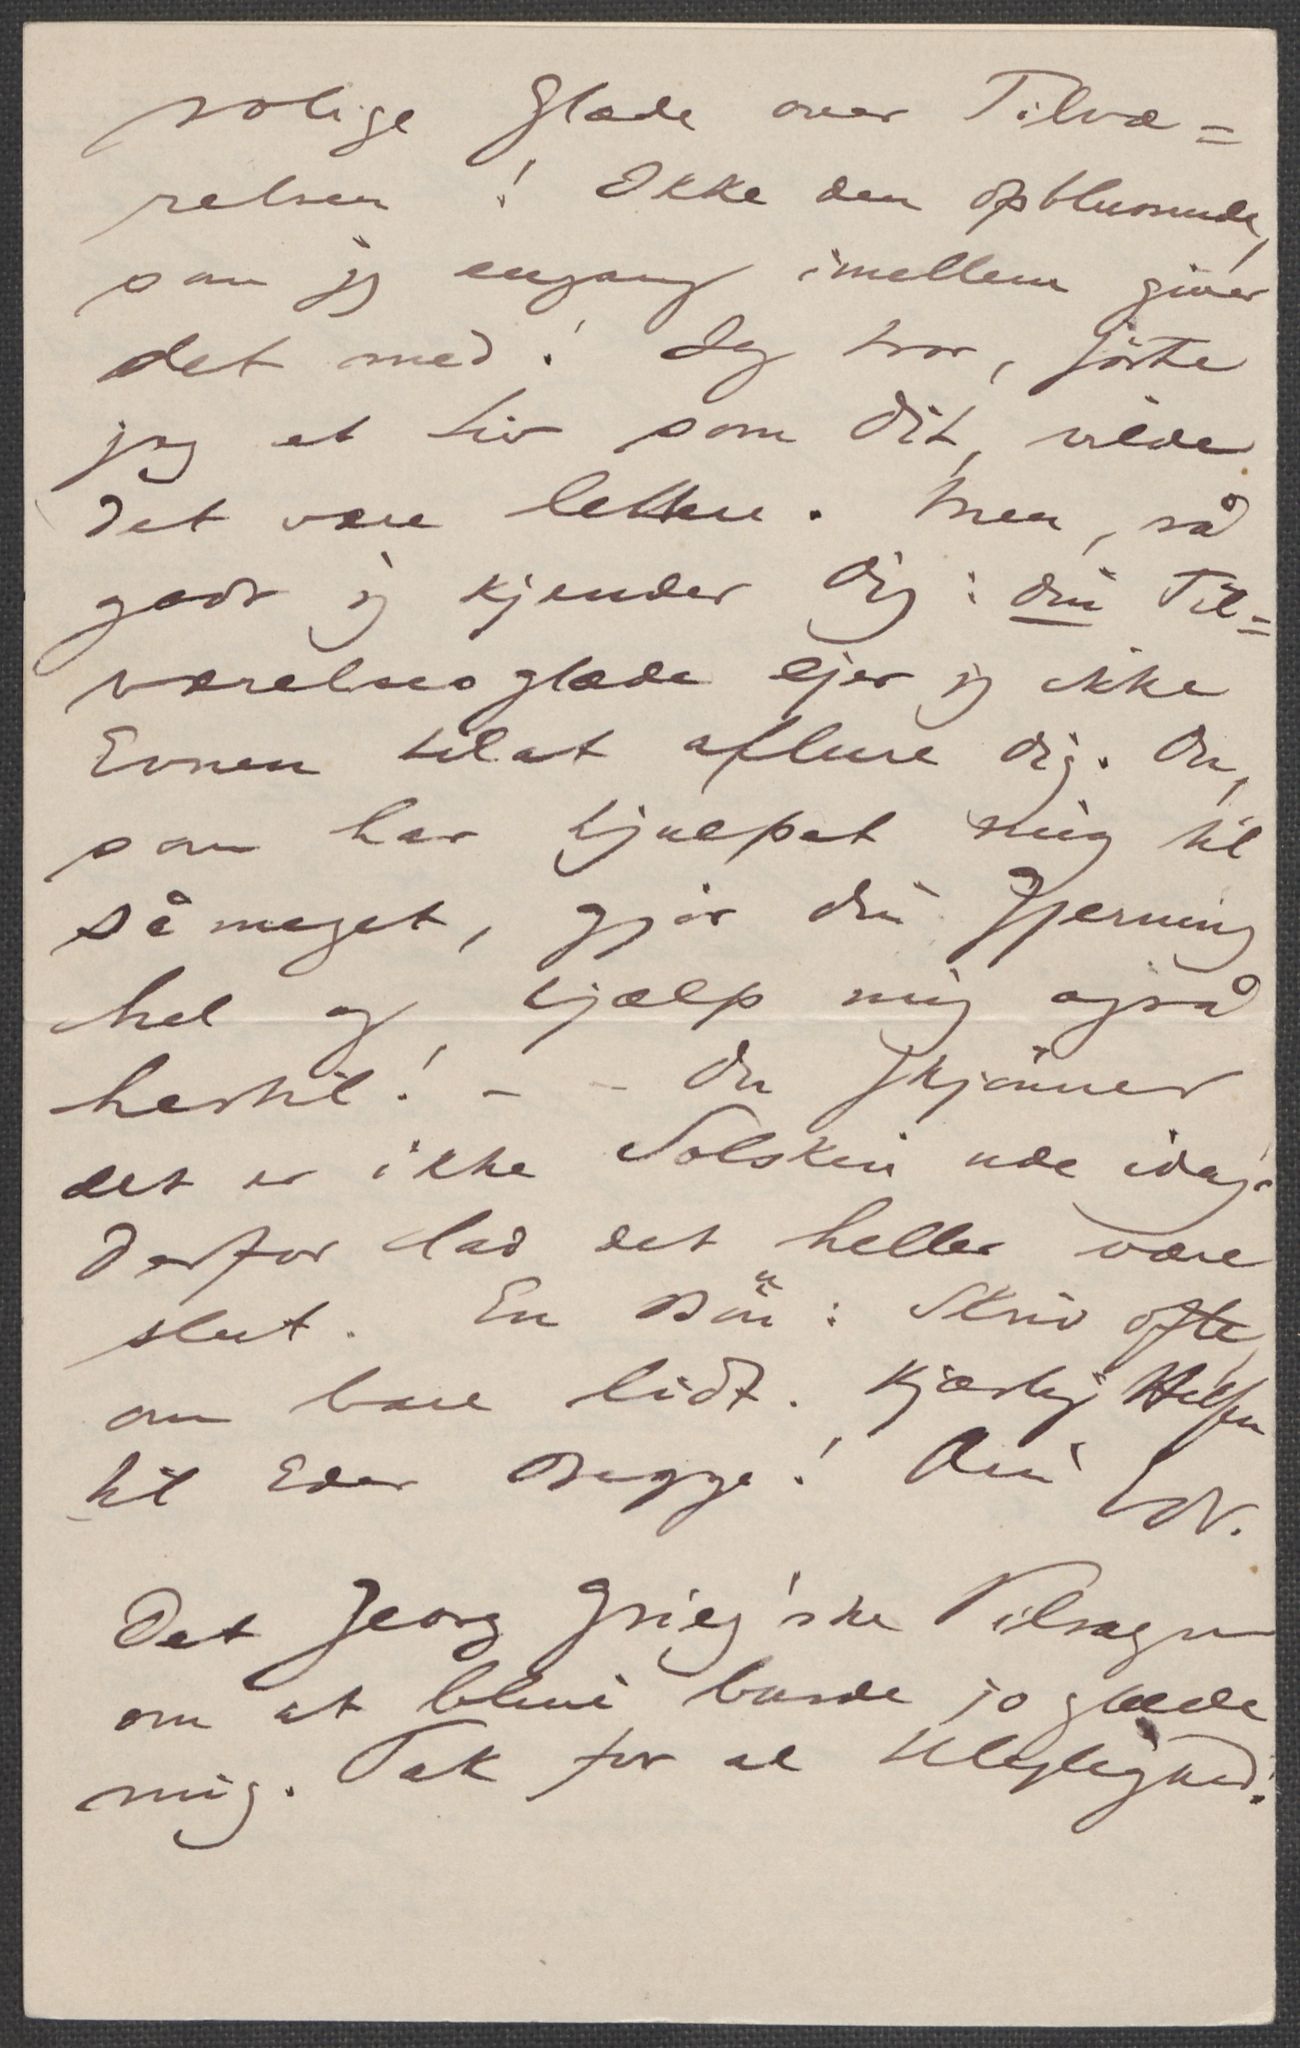 rolige Glæde over Tilvæ=
relsen! Ikke den opblussende,
som jeg engang imellem giver
det med! Jeg tror, førte
jeg et Liv som Dit, vilde
det være lettere. Men, så
godt jeg kjender Dig: din Til=
værelsesglæde ejer jeg ikke
Evnen tilat aflure Dig. Du,
som har hjulpet mig til
så meget, gjør din Gjerning
hel og hjælp mig også
hertil! – – Du skjønner
det er ikke Solskin ude idag.
Derfor lad det heller være
slut. En Bön: Skriv ofte,
om bare lidt. Kjærlig Hilsen
til Eder Begge! Din Edv.
Det Georg Grieg'ske Tilsagn
om at blive burde jo glæde
mig. Tak for al Ulejlighed!